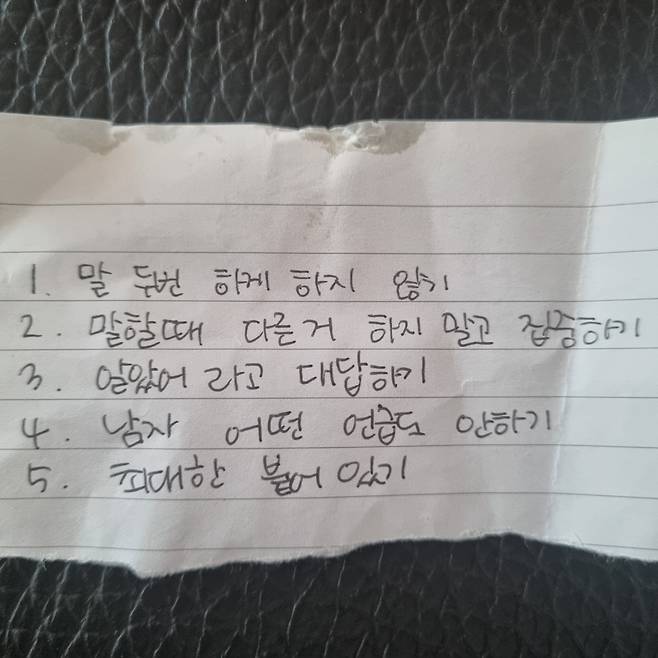 1. 말 두번 하게 하지 않기
2. 말할때 다른거 하지 말고 집중하기
3. 알았어 라고 대답하기
4. 남자 어떤 언급도 안하기
5. 최대한 붙어 있기